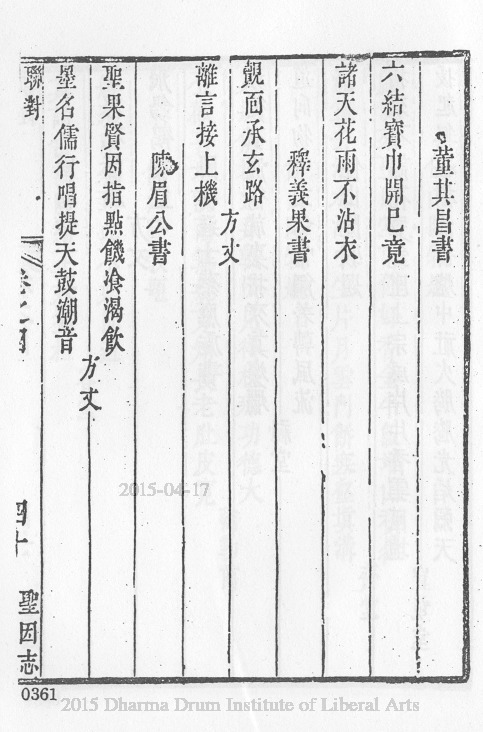 董其昌書
六結寶巾開已竟
諸天花雨不沾衣
釋義果書
覿面承玄路
方丈
離言接上機
陳眉公書
聖果賢因指點饑飡渴飲
方丈
墨名儒行唱提天鼓潮音
聯對
卷之四
四十
聖因志
2015-04-17
0361
2015 Dharma Drum Institute of Liberal Arts